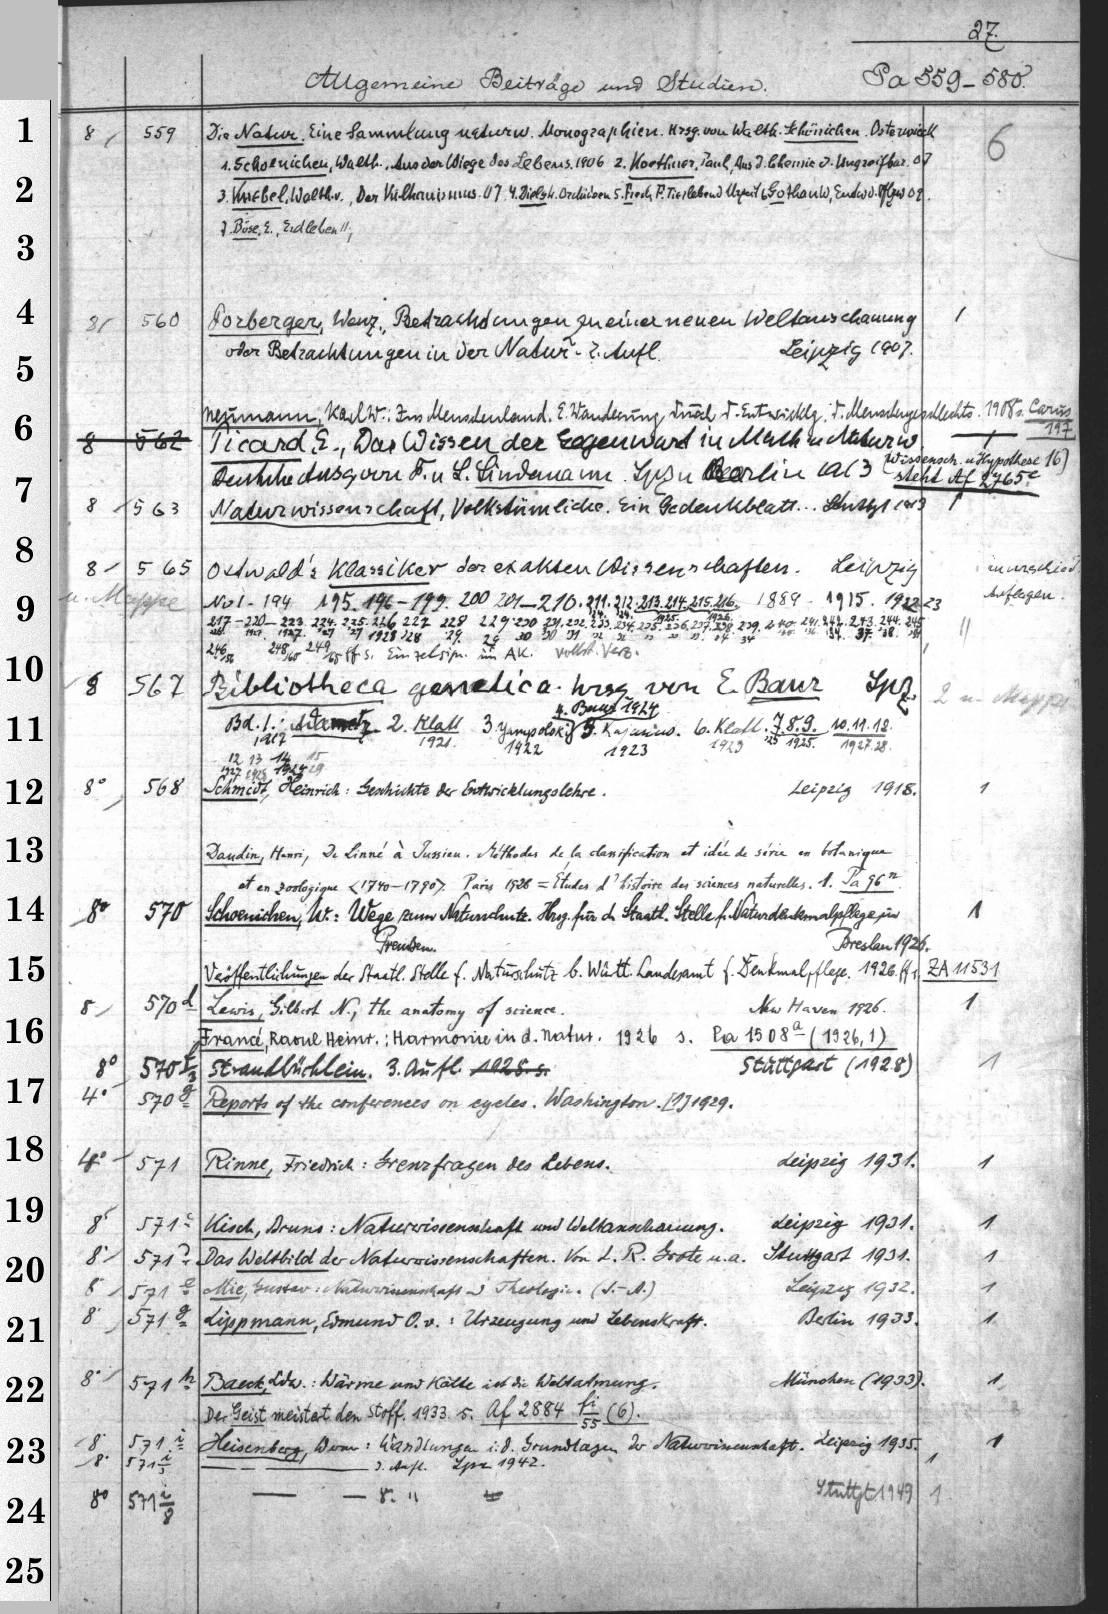 27.
Allgemeine Beiträge und Studien. Pa 559–580.
1
8 559 Die Natur. Eine Sammlung naturw. Monographien. Hrsg. von Walth. Schönichen. Osterwieck 6
1. Schoenichen, Walth., Aus der Wiege des Lebens. 1906 2. Koethner, Paul, Aus d. Chemie d. Ungreifbar. 07
2
3. Knebel, Walth. v., Der Vulkanismus. 07 4. Diels, Orchideen 5. Frech, F. Tierleben d Urzeit 6. Gothan W, Entw d. Pflzw 09.
7. Böse, E., Erdleben 11,
3
4
8 560 Dorberger, Wenz., Betrachtungen zu einer neuen Weltanschauung 1
oder Betrachtungen in der Natur. 2. Aufl. Leipzig 1907.
5
Neumann, Karl W.: Ins Menschenland. E. Wanderung durch d. Entwicklg. d. Menschengeschlechts. 1908 s. Carus 197
6
8 562 Picard, E., Das Wissen der Gegenwart in Math u Naturw. 1
Deutsche Ausg von F. u L. Lindemann. Lpz u Berlin 1913 (Wissensch. u Hypothese 16)
steht Af 2765c
7
8 563 Naturwissenschaft, Volkstümliche. Ein Gedenkblatt... Stuttgt 1913 1
8
8 565 Ostwald's Klassiker der exakten Wissenschaften. Leipzig in verschied.
Auflagen.
u. Mappe
9
No 1 - 194 195. 196–199. 200 201–210. 211. 212. 213. 214. 215. 216. 1889 - 1915. 1922 23
217–220–223. 224. 225. 226 227 228 229. 230 231. 232. 233. 234. 235. 236. 237. 238. 239. 240. 241. 242. 243. 244. 245 11
246 248 249 ff s. Einzelsign. im AK. vollst. Verz.
10
8 567 Bibliotheca genetica. hrsg. von E. Baur Lpz. 2 u. Mappe
4. Baur 1924
11
Bd. 1.: Adametz 2. Klatt 3. Yampolsky 5. Kajanus. 6. Klatt. 7. 8. 9. 10. 11. 18.
1917 1921. 1922 1923 1923 '25 1925. 1927. 28.
12 13 14 15
1927 1928 1929 29
12
8° 568 Schmidt, Heinrich: Geschichte der Entwicklungslehre. Leipzig 1918. 1
13
Daudin, Henri, De Linné à Jussieu. Méthodes de la classification et idée de série en botanique
et en zoologique <1740–1790>. Paris 1926 = Études d'histoire des sciences naturelles. 1. Pa 96n
14
8° 570 Schoenichen, W.: Wege zum Naturschutz. Hrsg. für d. Staatl. Stelle f. Naturdenkmalpflege in 1
Preußen. Breslau 1926.
15
Veröffentlichungen der Staatl. Stelle f. Naturschutz b. Württ. Landesamt f. Denkmalpflege. 1926 ff. ZA 11531
8 570d Lewis, Gilbert N., the anatomy of science. New Haven 1926. 1
16
Francé, Raoul Heinr.: Harmonie in d. Natur. 1926 s. Pa 1508a (1926,1)
8° 570f/3 Strandbüchlein. 3. Aufl. 1928. s. Stuttgart (1928) 1
17
4° 570g Reports of the conferences on cycles. Washington. [1] 1929.
18
4° 571 Rinne, Friedrich: Grenzfragen des Lebens. Leipzig 1931. 1
19
8° 571c Kisch, Bruno: Naturwissenschaft und Weltanschauung. Leipzig 1931. 1
20
8° 571 Das Weltbild der Naturwissenschaften. Von L. R. Grote u. a. Stuttgart 1931. 1
8° 571e Mie, Gustav: Naturwissenschaft u Theologie. (S.-A.) Leipzig 1932. 1
21
8° 571g Lippmann, Edmund O. v.: Urzeugung und Lebenskraft. Berlin 1933. 1
22
8° 571h Baeck, Ldw.: Wärme und Kälte ist die Weltatmung. München (1933). 1
Der Geist meistert den Stoff. 1933. s. Af 2884 fi/55 (6).
23
8° 571i Heisenberg, Wern: Wandlungen i. d. Grundlagen der Naturwissenschaft. Leipzig 1935. 1
8° 571i/3 — — 3. Aufl. Lpz 1942. 1
24
8° 571i/8 — — 8. " Stuttgt 1949 1
25